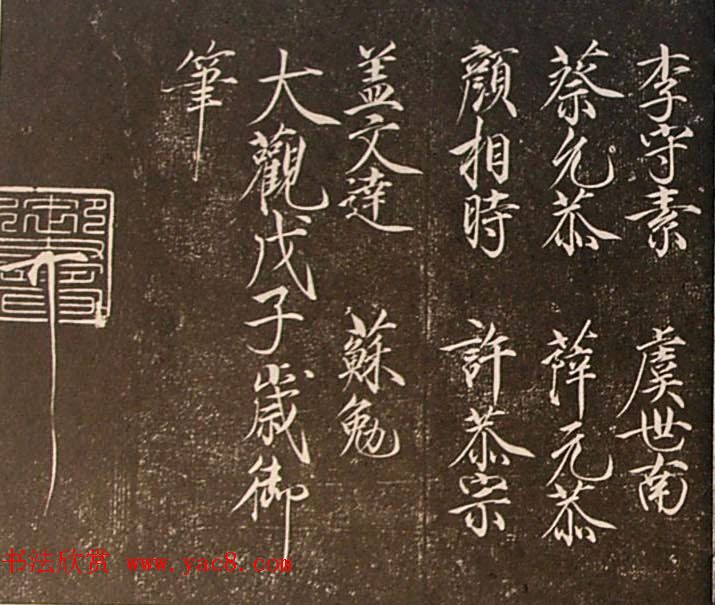 李守素　虞世南
蔡允恭　薛元恭
顔相時　許恭宗
盖文達　蘇勉
大觀戊子歲御
筆
书法欣赏 www.yac8.com